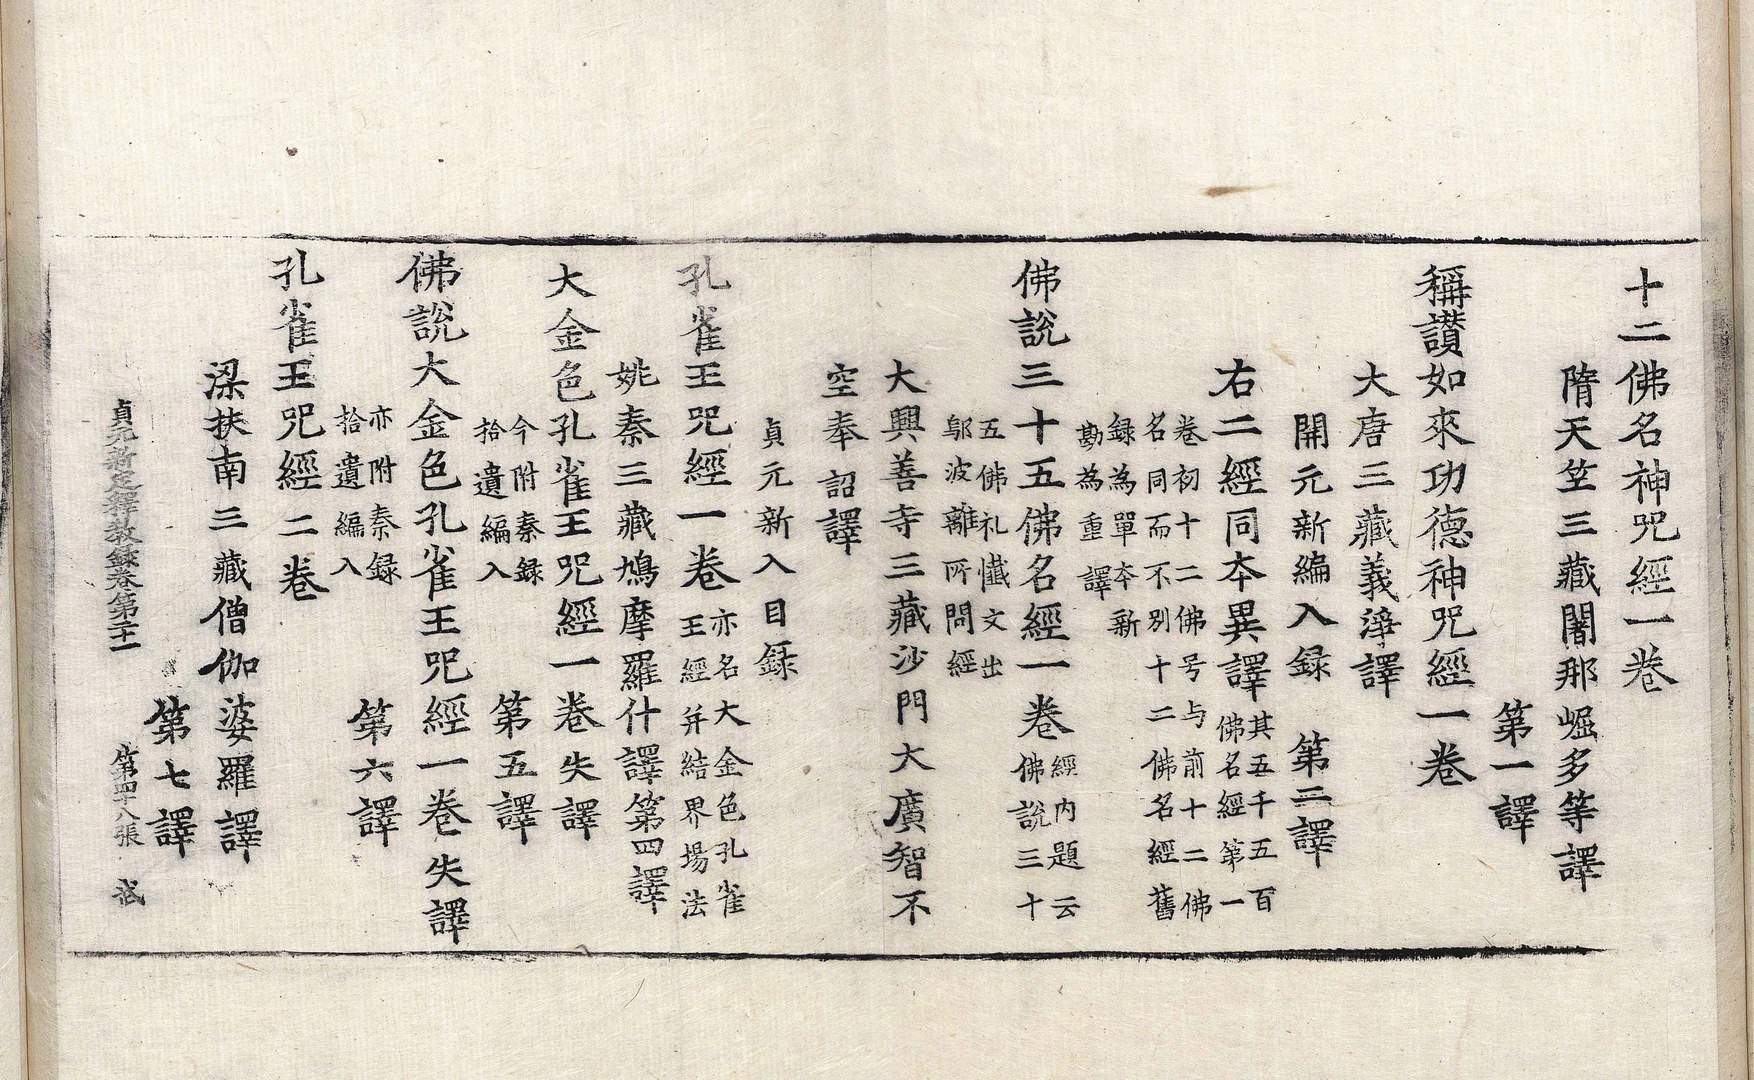 十二佛名神咒經一卷
隋天竺三藏闍那崛多等譯
第一譯
稱讃如來功德神咒經一卷
大唐三藏義淨譯
開元新編入録 第二譯
右二經同夲異譯其五千五百佛名經第一
卷初十二佛号与前十二佛名同而不別十二佛名經舊
録為單夲新勘為重譯
佛說三十五佛名經一卷經内題云佛說三十
五佛礼懺文出鄔波離所問經
大興善寺三藏沙門大廣智不
空奉 詔譯
貞元新入目録
孔雀王咒經一卷亦名大金色孔雀王經并結界場法
姚秦三藏鳩摩羅什譯第四譯
大金色孔雀王咒經一卷失譯
今附秦録拾遺編入 第五譯
佛說大金色孔雀王咒經一卷失譯
亦附秦録拾遺編入 第六譯
孔雀王咒經二卷
梁扶南三藏僧伽婆羅譯
第七譯
貞元新定釋教録卷第二十一 第四十八張